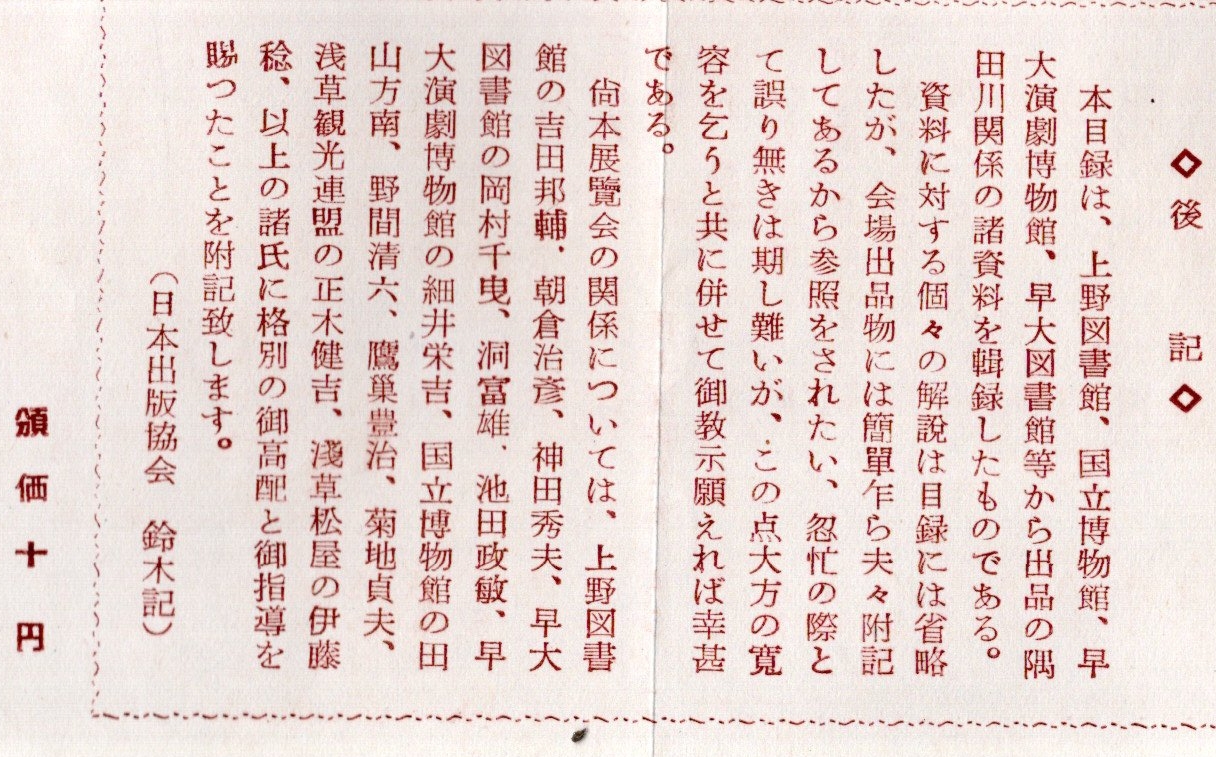 ◇後記◇
本目録は、上野図書館、国立博物館、早
大演劇博物館、早大図書館等から出品の隅
田川関係の諸資料を輯録したものである。
資料に対する個々の解説は目録には省略
したが、会場出品物には簡單乍ら夫々附記
してあるから参照をされたい、忽忙の際と
て誤り無きは期し難いが、この点大方の寛
容を乞うと共に併せて御教示願えれば幸甚
である。
尙本展覽会の関係については、上野図書
館の吉田邦輔、朝倉治彦、神田秀夫、早大
図書館の岡村千曳、洞富雄、池田政敏、早
大演劇博物館の細井栄吉、国立博物館の田
山方南、野間清六、鷹巣豊治、菊地貞夫、
浅草観光連盟の正木健吉、淺草松屋の伊藤
稔、以上の諸氏に格別の御高配と御指導を
賜つたことを附記致します。
（日本出版協会　鈴木記）
頒価十円